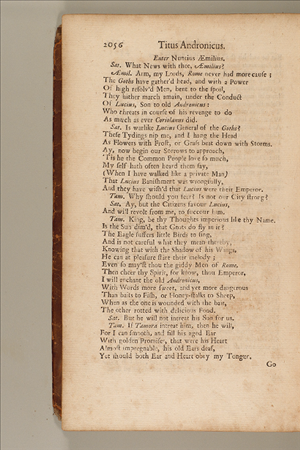 2056 Titus Andronicus.
Enter Nuntius Æmilius.
Sat. What News with thee, Æmilius?
Æmil. Arm, my Lords, Rome never had more cause;
The Goths have gather'd head, and with a Power
Of high resolv'd Men, bent to the spoil,
They hither march amain, under the Conduct
Of Lucius, Son to old Andronicus:
Who threats in course of his revenge to do
As much as ever Coriolanus did.
Sat. Is warlike Lucius General of the Goths?
These Tydings nip me, and I hang the Head
As Flowers with Frost, or Grass beat down with Storms.
Ay, now begin our Sorrows to approach,
'Tis he the Common People love so much,
My self hath often heard them say,
(When I have walked like a private Man)
That Lucius Banishment was wrongfully,
And they have wish'd that Lucius were their Emperor.
Tam. Why should you fear? Is not our City strong?
Sat. Ay, but the Citizens favour Lucius,
And will revolt from me, to succour him.
Tam. King, be thy Thoughts imperious like thy Name.
Is the Sun dim'd, that Gnats do fly in it?
The Eagle suffers little Birds to sing,
And is not careful what they mean thereby,
Knowing that with the Shadow of his Wings,
He can at pleasure stint their melody;
Even so may'st thou the giddy Men of Rome.
Then cheer thy Spirit, for know, thou Emperor,
I will enchant the old Andronicus,
With Words more sweet, and yet more dangerous
Than baits to Fish, or Honey-stalks to Sheep,
When as the one is wounded with the bait,
The other rotted with delicious Food.
Sat. But he will not intreat his Son for us.
Tam. If Tamora intreat him, then he will,
For I can smooth, and fill his aged Ear
With golden Promises, that were his Heart
Almost impregnable, his old Ears deaf,
Yet should both Ear and Heart obey my Tongue.
Go